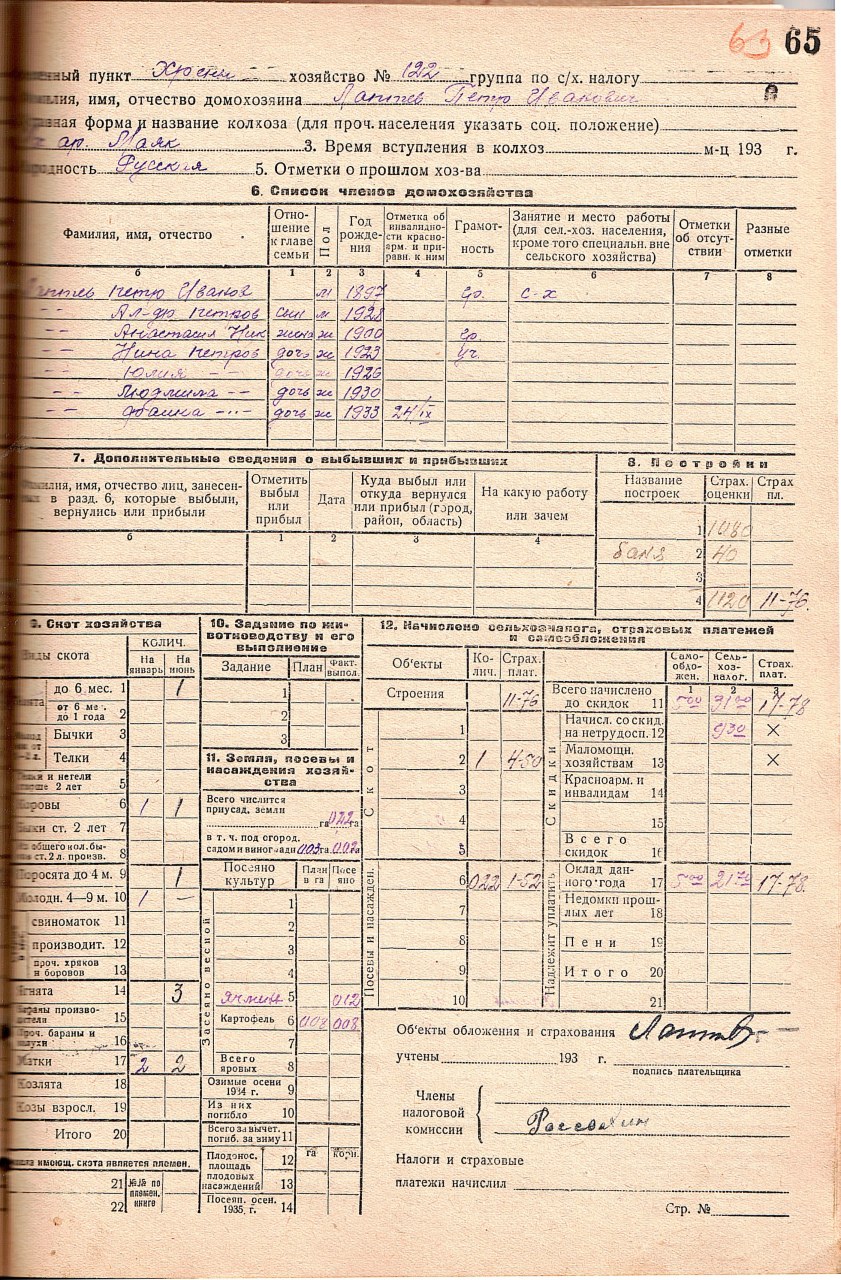 63 65
пункт Хрюкин хозяйство № 122 группа по с/х. налогу
имя, отчество домохозяина Лаптев Петр Иванович
форма и название колхоза (для проч. населения указать соц. положение)
ар. Маяк 3. Время вступления в колхоз м-ц 193 г.
Русская 5. Отметки о прошлом хоз-ва
6. Список членов домохозяйства
Фамилия, имя, отчество Отношение к главе семьи Пол Год рождения Отметка об инвалидности красноарм. и приравн. к ним Грамотность Занятие и место работы (для сел.-хоз. населения, кроме того специальн. вне сельского хозяйства) Отметки об отсутствии Разные отметки
б 1 2 3 4 5 6 7 8
Лаптев Петр Иванов м 1897 гр. с-х
-- Ал-др Петров сын м 1928
-- Анастасия Ник жена ж 1900 гр.
-- Нина Петров дочь ж 1923 уч.
-- Юлия -- дочь ж 1926
-- Людмила -- дочь ж 1930
-- Фаина -- дочь ж 1933 24/IX
7. Дополнительные сведения о выбывших и прибывших
имя, отчество лиц, занесенных в разд. 6, которые выбыли, вернулись или прибыли Отметить выбыл или прибыл Дата Куда выбыл или откуда вернулся или прибыл (город, район, область) На какую работу или зачем
б 1 2 3 4
8. Постройки
Название построек Страх. оценки Страх пл.
1 1080
баня 2 40
3
4 1120 11-76
9. Скот хозяйства
Виды скота КОЛИЧ. На январь На июнь
до 6 мес. 1 1
от 6 мес. до 1 года 2
Бычки 3
Телки 4
Телки и нетели старше 2 лет 5
Коровы 6 1 1
Быки ст. 2 лет 7
общего кол. бы- ст. 2 л. произв. 8
Поросята до 4 м. 9 1
Молодн. 4—9 м. 10 1 —
свиноматок 11
производит. 12
проч. хряков и боровов 13
Ягнята 14 3
Бараны производители 15
Проч. бараны и валухи 16
Матки 17 2 2
Козлята 18
Козы взросл. 19
Итого 20
имеющ. скота является племен.
21 №№ по племен. книге
22
10. Задание по животноводству и его выполнение
Задание План Факт. выпол.
1
2
3
11. Земля, посевы и насаждения хозяйства
Всего числится приусад. земли
га 022 га
в т. ч. под огород. садом и виноградн. 003 га 002
Посеяно культур План в га Посеяно
Засеяно весной
1
2
3
4
Ячмень 5 012
Картофель 6 008 008
7
Всего яровых 8
Озимые осени 1934 г. 9
Из них погибло 10
Всего за вычет. погиб. за зиму 11
Плодонос. площадь плодовых насаждений 12 га корн.
13
Посеян. осен. 1935 г. 14
12. Начислено сельхозналога, страховых платежей и самообложения
Об'екты Количе. Страх. плат.
Строения 11-76
Скот
1
2 1 4-50
3
4
5
Посевы и насажден.
6 022 1-52
7
8
9
10
Самообложен. Сельхозналог. Страх. плат.
1 2 3
Всего начислено до скидок 11 5 00 31 00 17-78
Скидки
Начисл. со скид. на нетрудосп. 12 9 30 ×
Маломощн. хозяйствам 13 ×
Красноарм. и инвалидам 14
15
Всего скидок 16
Надлежит уплатить
Оклад данного года 17 5 00 21 70 17-78
Недомки прошлых лет 18
Пени 19
Итого 20
21
Об'екты обложения и страхования Лаптев
учтены 193 г.
подпись плательщика
Члены налоговой комиссии
Налоги и страховые
платежи начислил
Стр. №